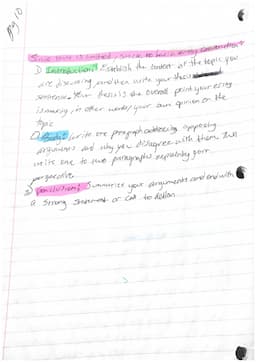 pg 10
Since time is limited, stick to basic essay construction
1) Introduction: Establish the context of the topic you
are discussing, and then write your thesis
sentence. Your thesis is the overall point your essay
is making, in other words, your own opinion on the
topic
2) Body: write one paragraph addressing opposing
arguments and why you disagree with them. Then
write one to two paragraphs explaining your
perspective.
3) Conclusion: Summarize your arguments and end with
a strong statement or call to action